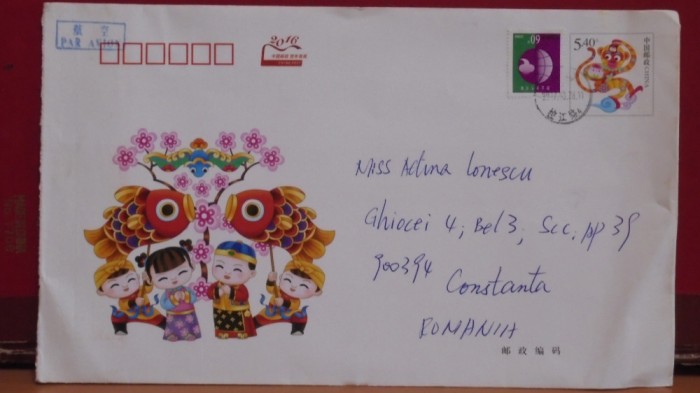 航空
PAR AVION
2016
60分
5.40元
中国邮政
CHINA
Miss Adina Ionescu
Ghiocei 4; Bel 3, Scc, Ap 39
900394 Constanta
ROMANIA
邮政编码